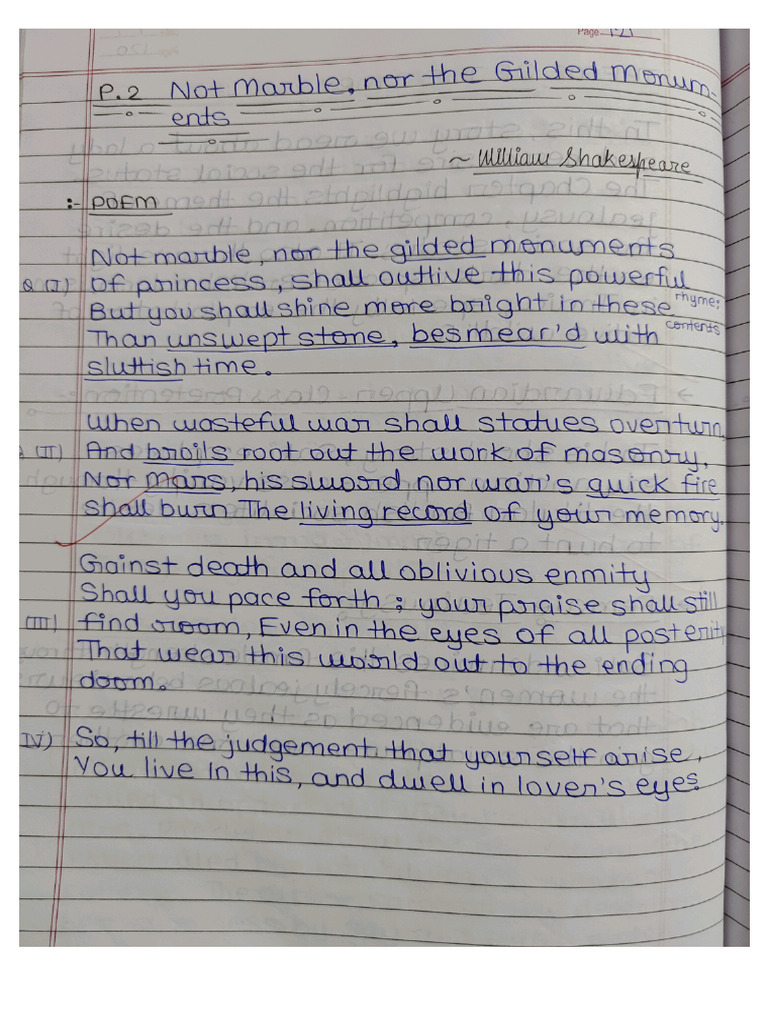 Page 121
P.2 Not Marble, nor the Gilded Monum-
ents
~ William Shakespeare
:- POEM
Not marble, nor the gilded monuments
Q (I) Of princess, shall outlive this powerful rhyme;
But you shall shine more bright in these contents
Than unswept stone, besmear'd with
sluttish time.
When wasteful war shall statues overturn,
(II) And broils root out the work of masonry,
Nor mars, his sword nor war's quick fire
Shall burn The living record of your memory.
Gainst death and all oblivious enmity
Shall you pace forth; your praise shall still
(III) find room, Even in the eyes of all posterity
That wear this world out to the ending
doom.
IV) So, till the judgement that yourself arise,
You live in this, and dwell in lover's eyes.